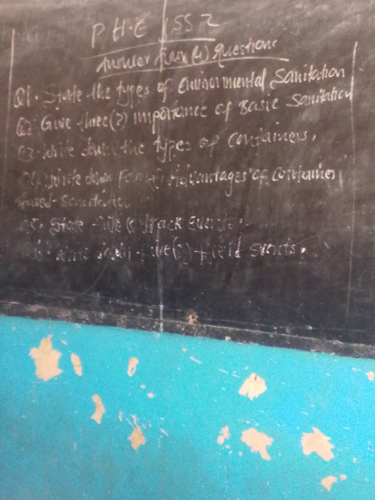 P.H.E JSS2
Answer four (4) questions
Q1. State the types of Environmental Sanitation
Q2. Give three(3) importance of Basic Sanitation
Q3. Write down the types of Containers.
Write down Advantages of Container
Based-Sanitation
Q5. State five track Events.
down five() field events.